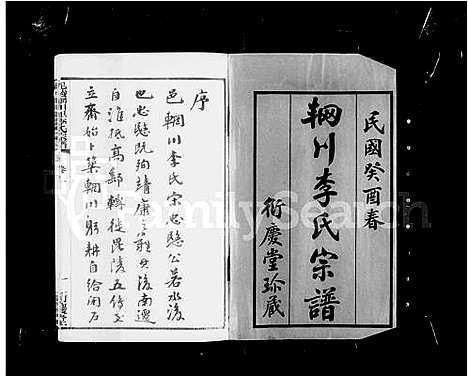 民國癸酉春
輞川李氏宗譜
衍慶堂珍藏
序
邑輞川李氏宗忠愍公若水後
也忠愍既殉靖康之難其後南遷
自淮抵高郵轉徙毘陵五傳至
立齋始卜築輞川躬耕自給閑乃
FamilySearch